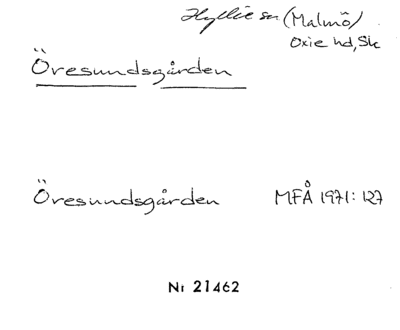 Hyllie sn (Malmö)
Oxie hd, Sk
Öresundsgården
Öresundsgården MFÅ 1971: 127
Nr 21462